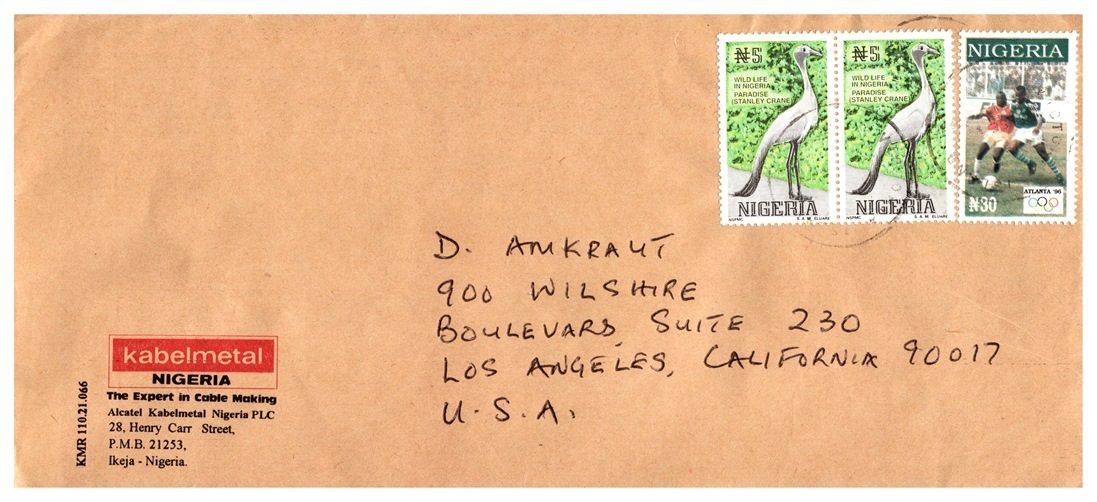 ₦5
WILD LIFE
IN NIGERIA
PARADISE
(STANLEY CRANE)
NIGERIA
NSPMC
S. A. M. ELUARE
₦5
WILD LIFE
IN NIGERIA
PARADISE
(STANLEY CRANE)
NIGERIA
NSPMC
S. A. M. ELUARE
NIGERIA
ATLANTA '96
₦30
D. AMKRAUT
900 WILSHIRE
BOULEVARD, SUITE 230
LOS ANGELES, CALIFORNIA 90017
U.S.A.
kabelmetal
NIGERIA
The Expert in Cable Making
Alcatel Kabelmetal Nigeria PLC
28, Henry Carr Street,
P.M.B. 21253,
Ikeja - Nigeria.
KMR 110.21.066